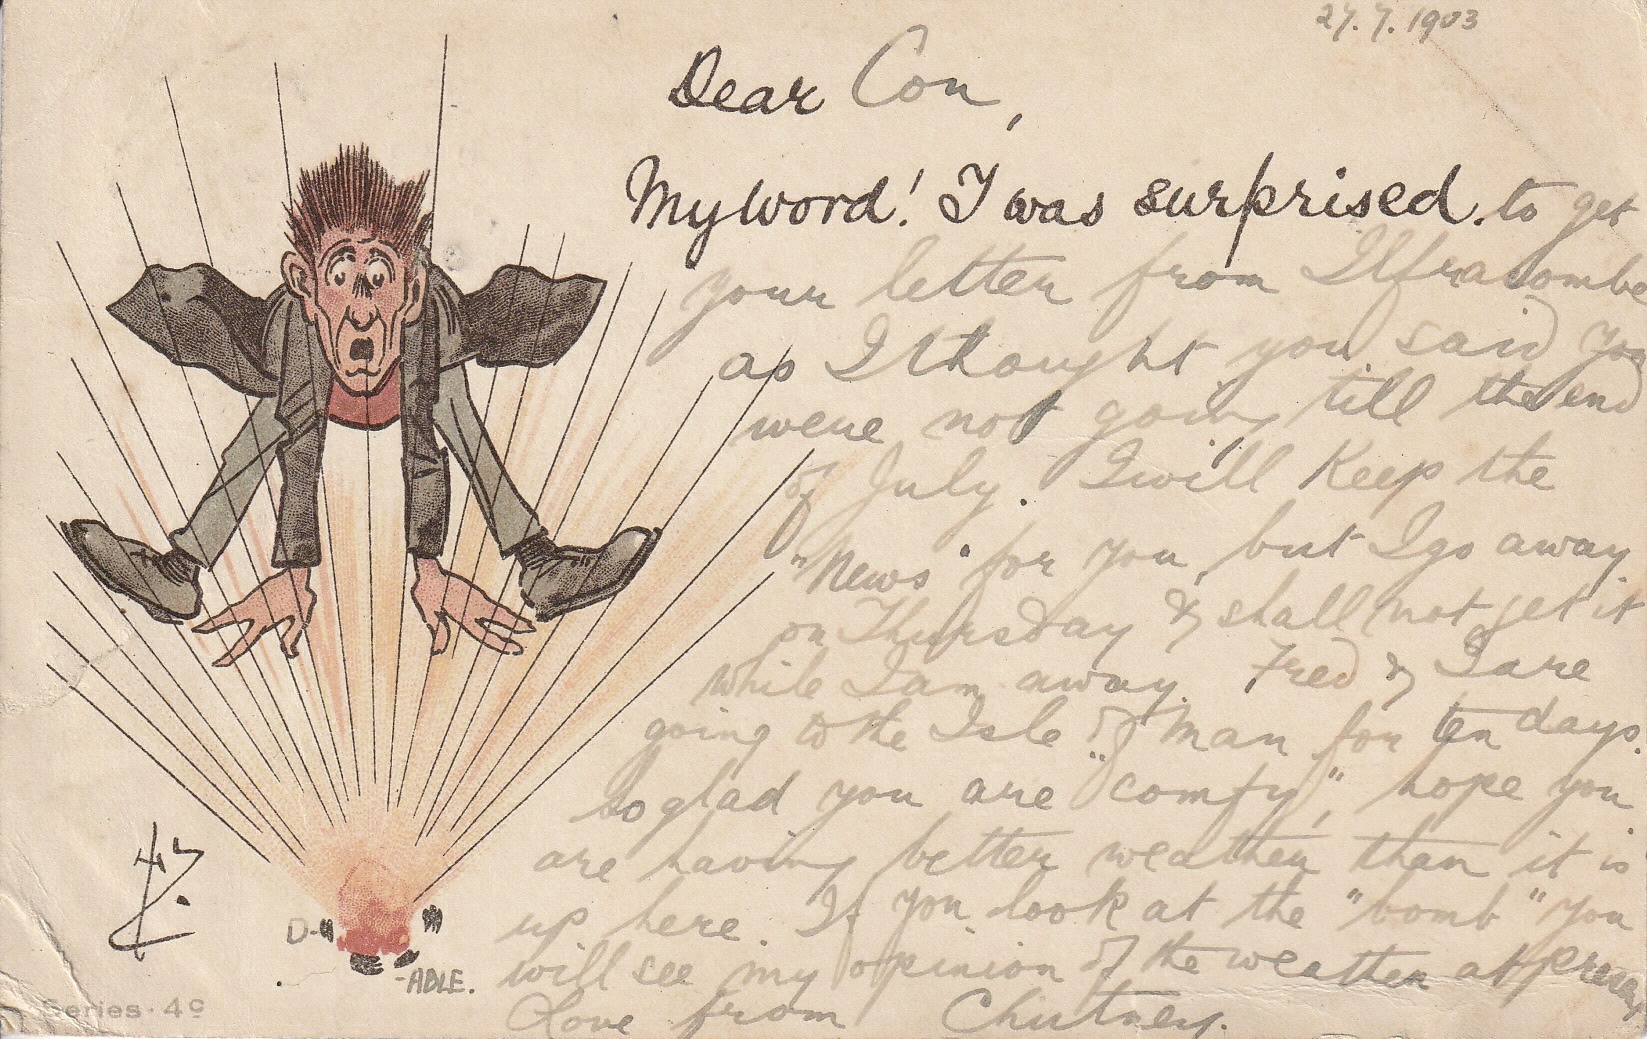 27.7.1903
Dear Con,
My word! I was surprised. to get
your letter from Ilfracombe
as I thought you said you
were not going till the end
of July. I will keep the
"News" for you, but I go away
on Thursday & shall not get it
while I am away. Fred & I are
going to the Isle of Man for ten days.
So glad you are "comfy", hope you
are having better weather than it is
up here. If you look at the "bomb" you
will see my opinion of the weather at present
Love from Chutney.
D-
-ABLE.
Series. 4c